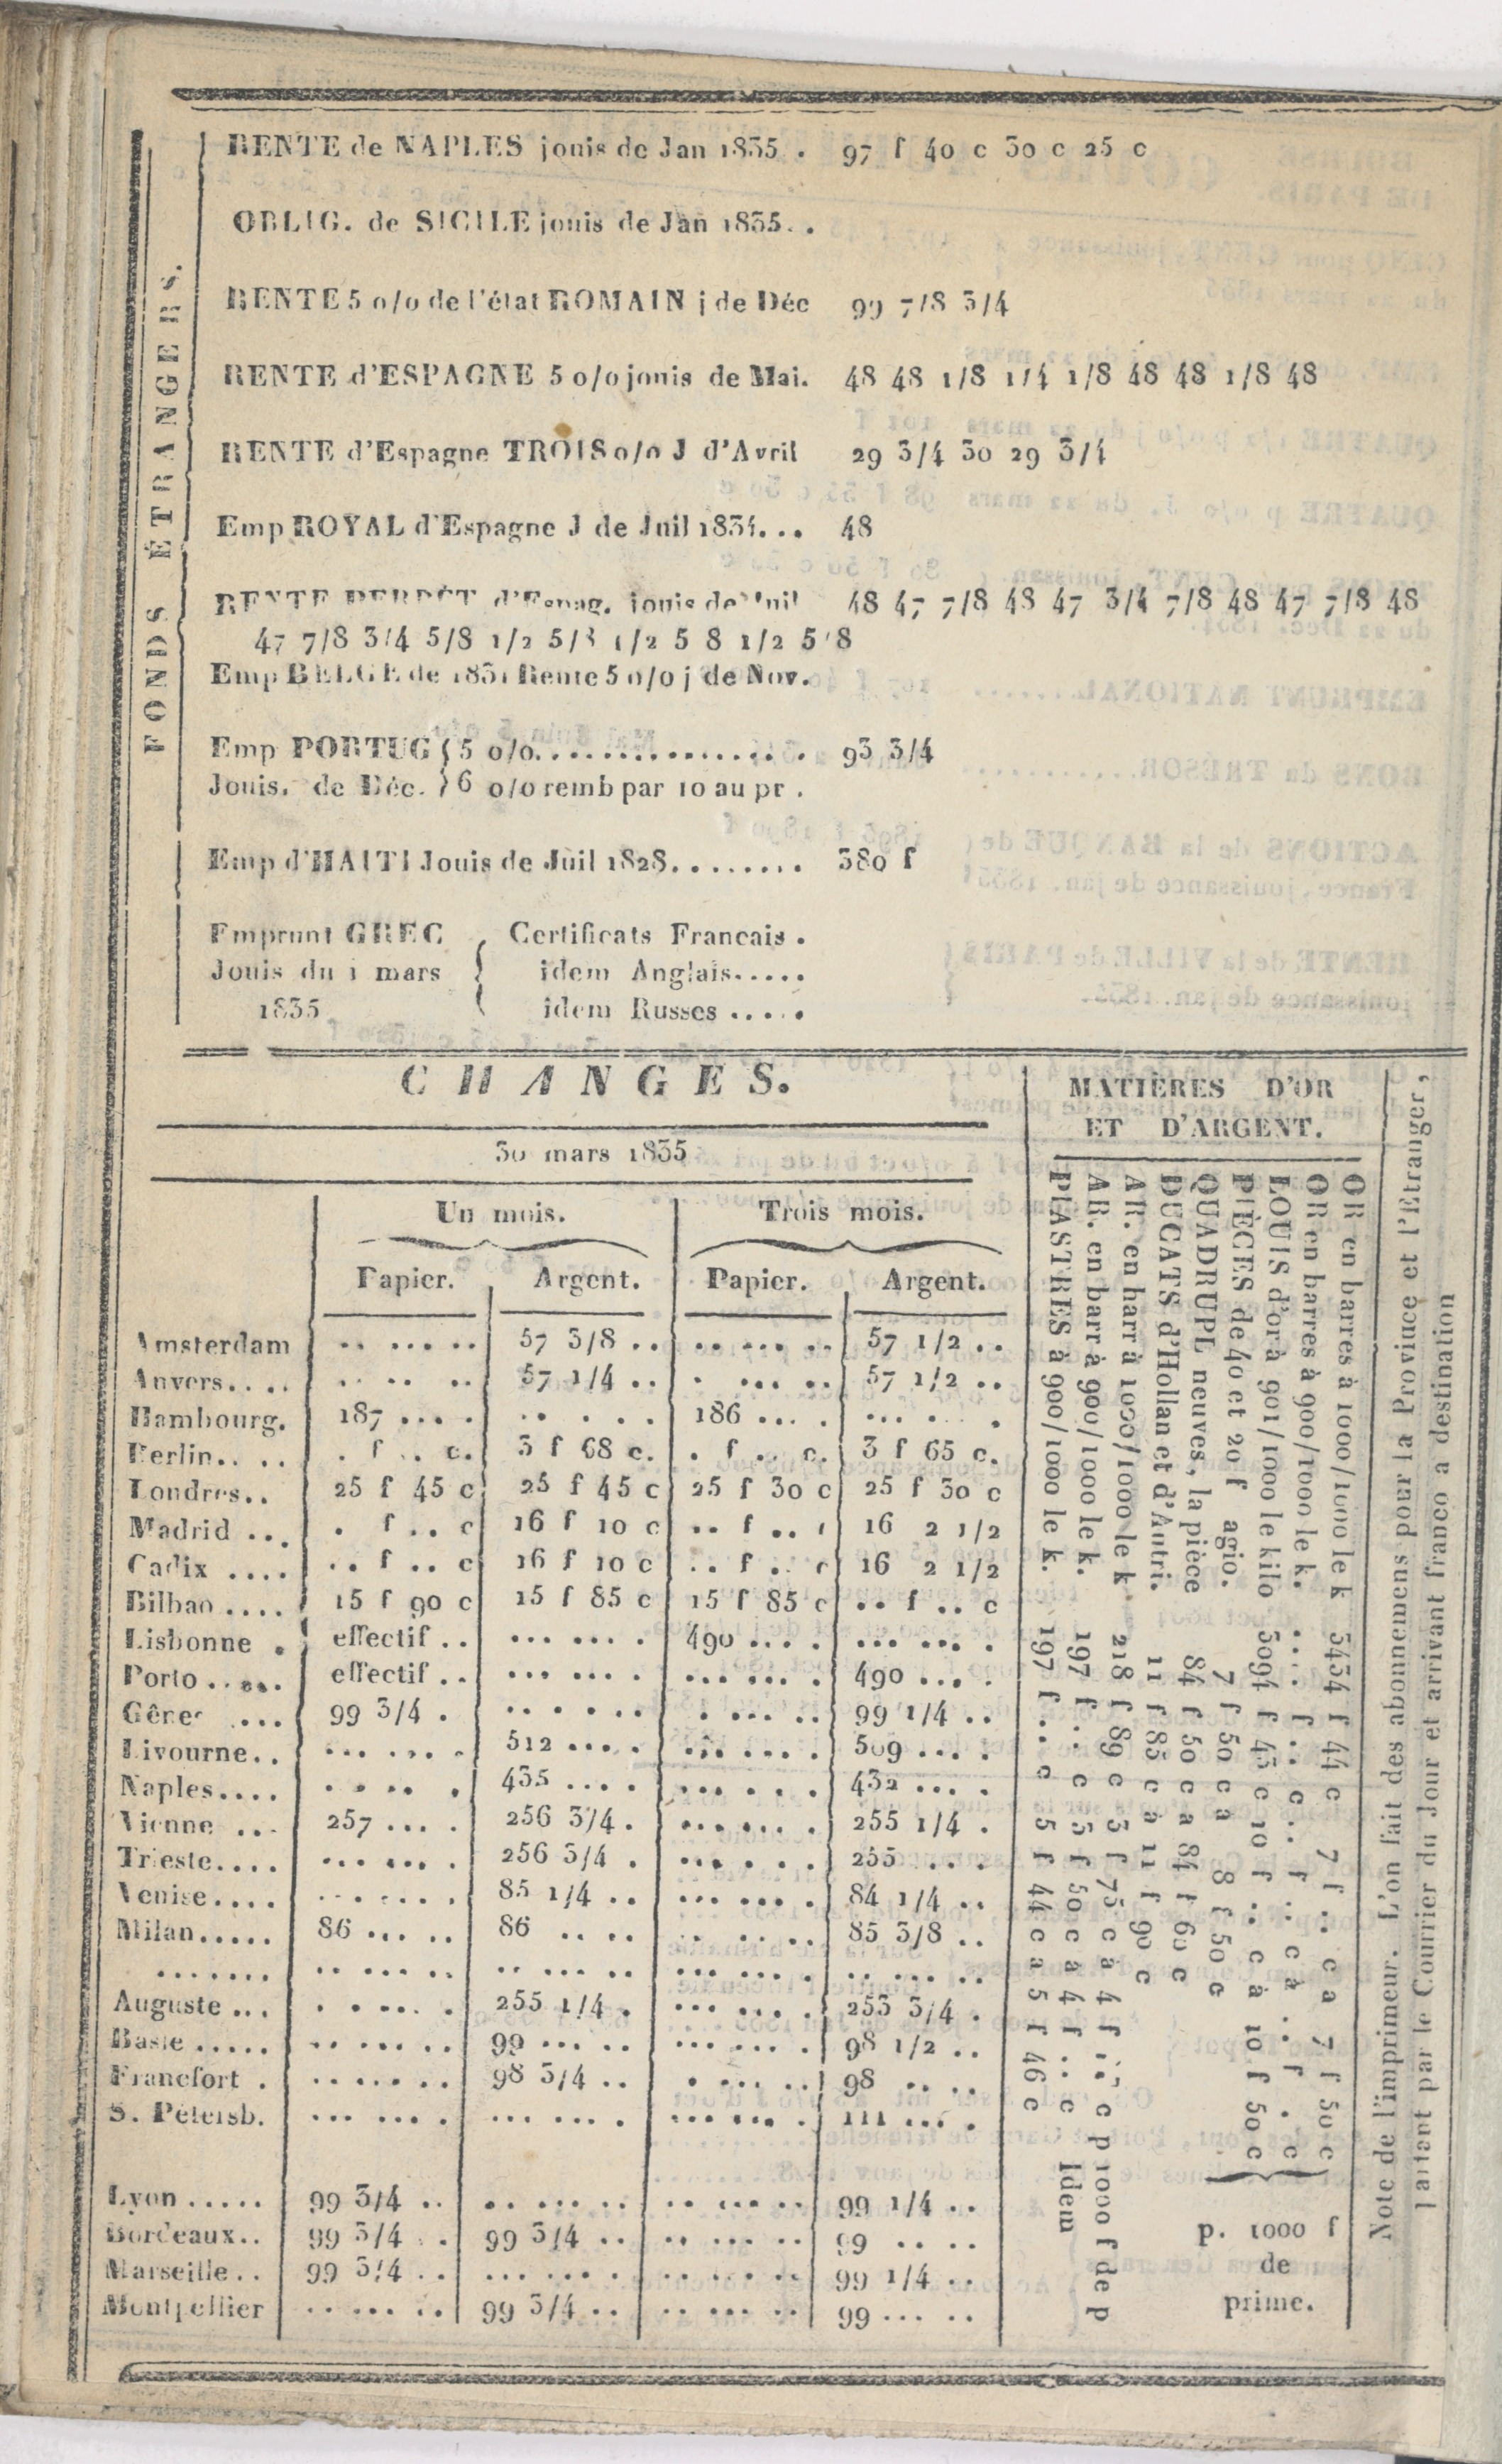 FONDS ÉTRANGERS.
RENTE de NAPLES jouis de Jan 1835 . 97 f 40 c 30 c 25 c
OBLIG. de SICILE jouis de Jan 1835. .
RENTE 5 o/o de l'état ROMAIN j de Déc 99 7/8 3/4
RENTE d'ESPAGNE 5 o/o jouis de Mai. 48 48 1/8 1/4 1/8 48 48 1/8 48
RENTE d'Espagne TROIS o/o J d'Avril 29 3/4 30 29 3/4
Emp ROYAL d'Espagne J de Juil 1834... 48
RENTE PERPÉT d'Espag. jouis de Juil 48 47 7/8 48 47 3/4 7/8 48 47 7/8 48
47 7/8 3/4 5/8 1/2 5/8 1/2 5 8 1/2 5/8
Emp BELGE de 1831 Rente 5 o/o j de Nov.
Emp PORTUG { 5 o/o................ 93 3/4
Jouis. de Déc. } 6 o/o remb par 10 au pr .
Emp d'HAITI Jouis de Juil 1828........ 380 f
Emprunt GREC { Certificats Francais .
Jouis du 1 mars idem Anglais.....
1835 idem Russes .....
CHANGES.
30 mars 1835
Un mois. Trois mois.
Papier. Argent. Papier. Argent.
Amsterdam .. ... .. 57 3/8 .. .. ... .. 57 1/2 ..
Anvers.... .. .. .. 57 1/4 .. . ... .. 57 1/2 ..
Hambourg. 187 ... . .. . . . 186 ... . ... . .
Berlin.. .. . f .. c. 3 f 68 c. . f .. c. 3 f 65 c.
Londres.. 25 f 45 c 25 f 45 c 25 f 30 c 25 f 30 c
Madrid ... . f .. c 16 f 10 c .. f .. 16 2 1/2
Cadix .... .. f .. c 16 f 10 c .. f .. c 16 2 1/2
Bilbao .... 15 f 90 c 15 f 85 c 15 f 85 c .. f .. c
Lisbonne . effectif .. ... ... . 490 ... . ... ... .
Porto ..... effectif .. ... ... . ... ... . 490 ... .
Gênes ... 99 3/4 . .. . . .. . ... .. 99 1/4 ..
Livourne.. ... ... . 512 ... . ... ... . 509 ... .
Naples.... . . .. . 435 ... . ... . . . 432 ... .
Vienne ... 257 ... . 256 3/4 . ... ... . 255 1/4 .
Trieste.... ... ... . 256 3/4 . ... . . . 255 ... .
Venise.... ... ... . 85 1/4 .. ... ... . 84 1/4 ..
Milan..... 86 ... .. 86 .. .. .. .. .. 85 3/8 ..
....... .. ... .. .. ... .. ... ... . .. ... ..
Auguste ... . . ... . 255 1/4 . ... ... . 253 3/4 .
Basle ..... .. ... .. 99 ... .. ... ... . 98 1/2 ..
Francfort . .. ... .. 98 3/4 .. . ... .. 98 .. ..
S. Pétersb. ... ... . ... ... . ... ... . 111 ... .
Lyon ..... 99 3/4 .. .. ... .. .. ... .. 99 1/4 ..
Bordeaux.. 99 3/4 .. 99 3/4 .. .. ... .. 99 .. ..
Marseille.. 99 3/4 .. ... ... . .. ... .. 99 1/4 ..
Montpellier .. ... .. 99 3/4 .. .. ... .. 99 ... ..
MATIÈRES D'OR
ET D'ARGENT.
OR en barres à 1000/1000 le k 3434 f 44 c 7 f .. c a 7 f 50 c
OR en barres à 900/1000 le k. .... f .. c .. f .. c à .. f . c
LOUIS d'or à 901/1000 le kilo 3094 f 43 c 10 f .. c à 10 f 50 c
PIÈCES de 40 et 20 f agio. 7 f 50 c a 8 f 50 c
QUADRUPL neuves, la pièce 84 f 50 c a 84 f 60 c
DUCATS d'Hollan et d'Autri. 11 f 85 c à 11 f 90 c
AR. en barr à 1000/1000 le k. 218 f 89 c 3 f 75 c à 4 f c p 1000 f de p
AR. en barr à 900/1000 le k. 197 f .. c 3 f 50 c à 4 f .. c Idem
PIASTRES à 900/1000 le k. 197 f .. c 5 f 44 c a 5 f 46 c
p. 1000 f
de
prime.
Note de l'imprimeur. L'on fait des abonnemens pour la Province et l'Etranger,
partant par le Courrier du Jour et arrivant franco a destination